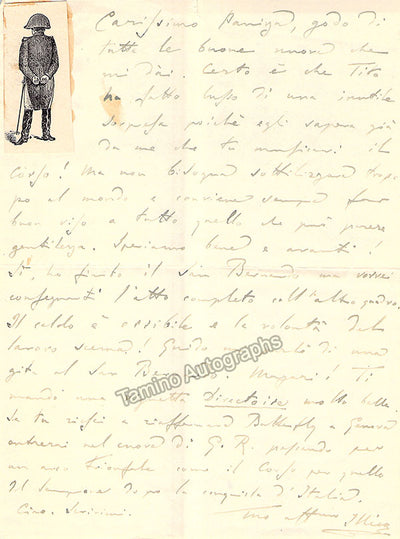 Carissimo Panizza, godo di
tutte le buone nuove che
mi dài. Certo è che Tito
ha fatto lusso di una inutile
sorpresa poichè egli sapeva già
da me che tu musicavi il
Corso! Ma non bisogna sottilizzare trop
po al mondo e conviene sempre far
buon viso a tutto quello che può parere
gentilezza. Speriamo bene e avanti!
Sì, ho finito il San Bernardo ma vorrei
consegnarti l'atto completo coll'altro quadro.
Il caldo è orribile e la volontà del
lavoro scema! Guido parla di una
gita al San Bernardo. Magari! Ti
mando una Directoire molto bella.
Se tu riesci a riaffermare Butterfly a Genova
entrerai nel cuore di G. R. passando per
un arco trionfale come il Corso per quello
del Sempione dopo la conquista d'Italia.
Ciao. Scrivimi. Tuo affmo Illica
Tamino Autographs